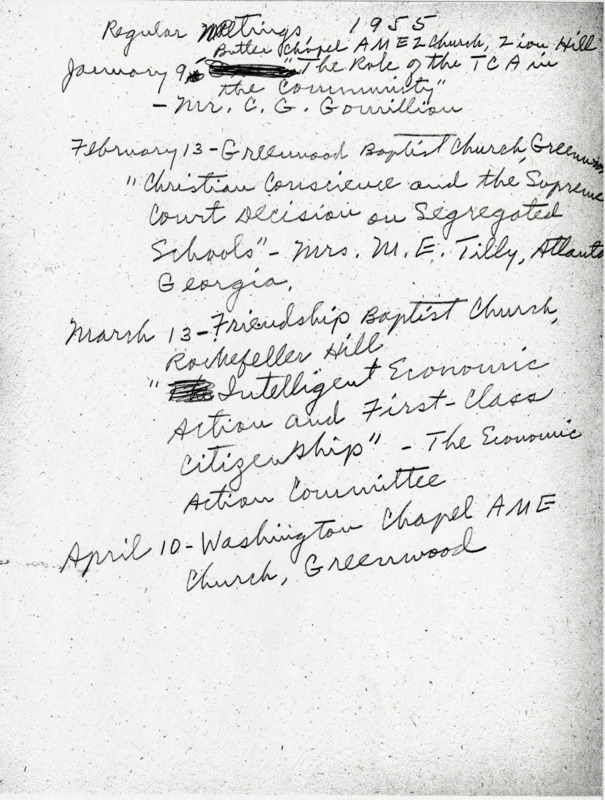 Regular Meetings 1955
Butler Chapel AMEZ Church, Zion Hill
January 9, "The Role of the TCA in
the Community"
- Mr. C. G. Gomillion
February 13 - Greenwood Baptist Church, Greenwood
"Christian Conscience and the Supreme
Court Decision on Segregated
Schools" - Mrs. M. E. Tilly, Atlanta
Georgia.
March 13 - Friendship Baptist Church,
Rockefeller Hill
" Intelligent Economic
Action and First-Class
Citizenship" - The Economic
Action Committee
April 10 - Washington Chapel AME
Church, Greenwood